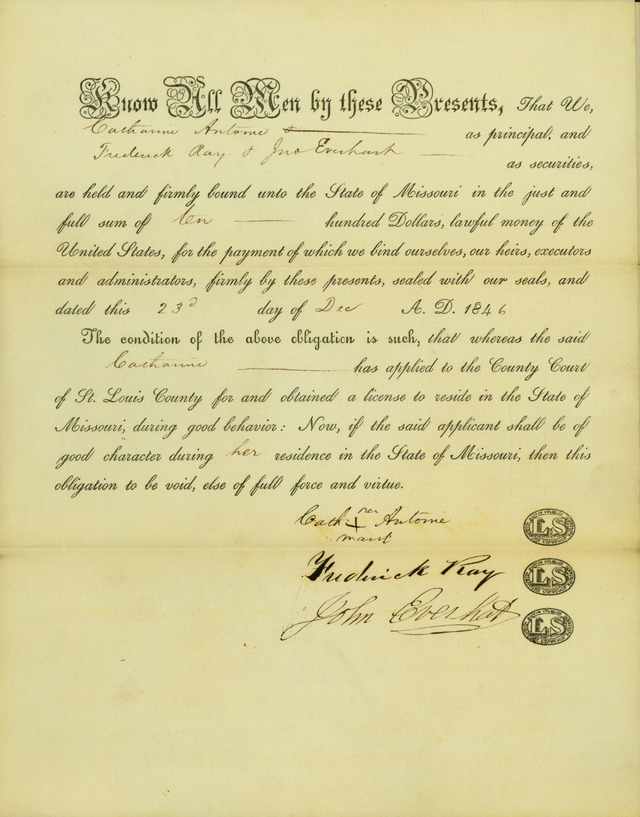 Know All Men by these Presents, That We,
Catharine Antoine as principal, and
Frederick Ray & Jno Everhart
as securities,
are held and firmly bound unto the State of Missouri in the just and
full sum of ten hundred Dollars, lawful money of the
United States, for the payment of which we bind ourselves, our heirs, executors
and administrators, firmly by these presents, sealed with our seals, and
dated this 23d day of Dec A. D. 1846
The condition of the above obligation is such, that whereas the said
Catharine has applied to the County Court
of St. Louis County for and obtained a license to reside in the State of
Missouri, during good behavior: Now, if the said applicant shall be of
good character during her residence in the State of Missouri, then this
obligation to be void, else of full force and virtue.
her
Cath: X Antoine
mark
LS
Frederick Ray
LS
John Everhart
LS